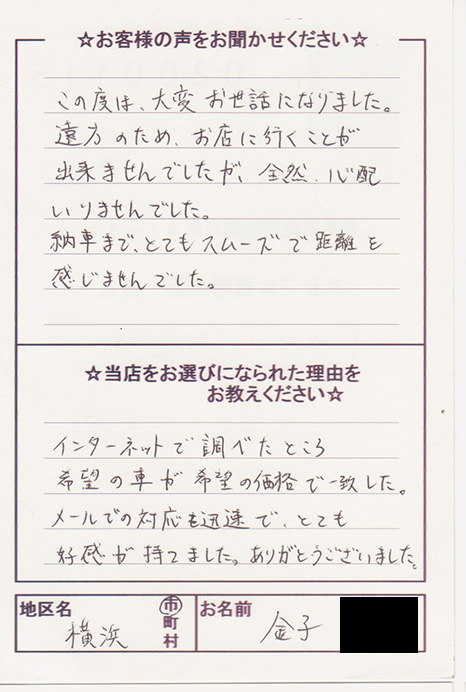 ☆お客様の声をお聞かせください☆
この度は、大変お世話になりました。
遠方のため、お店に行くことが
出来ませんでしたが、全然、心配
いりませんでした。
納車まで、とてもスムーズで距離を
感じませんでした。
☆当店をお選びになられた理由を
お教えください☆
インターネットで調べたところ
希望の車が希望の価格で一致した。
メールでの対応も迅速で、とても
好感が持てました。ありがとうございました。
地区名 横浜 市町村 お名前 金子